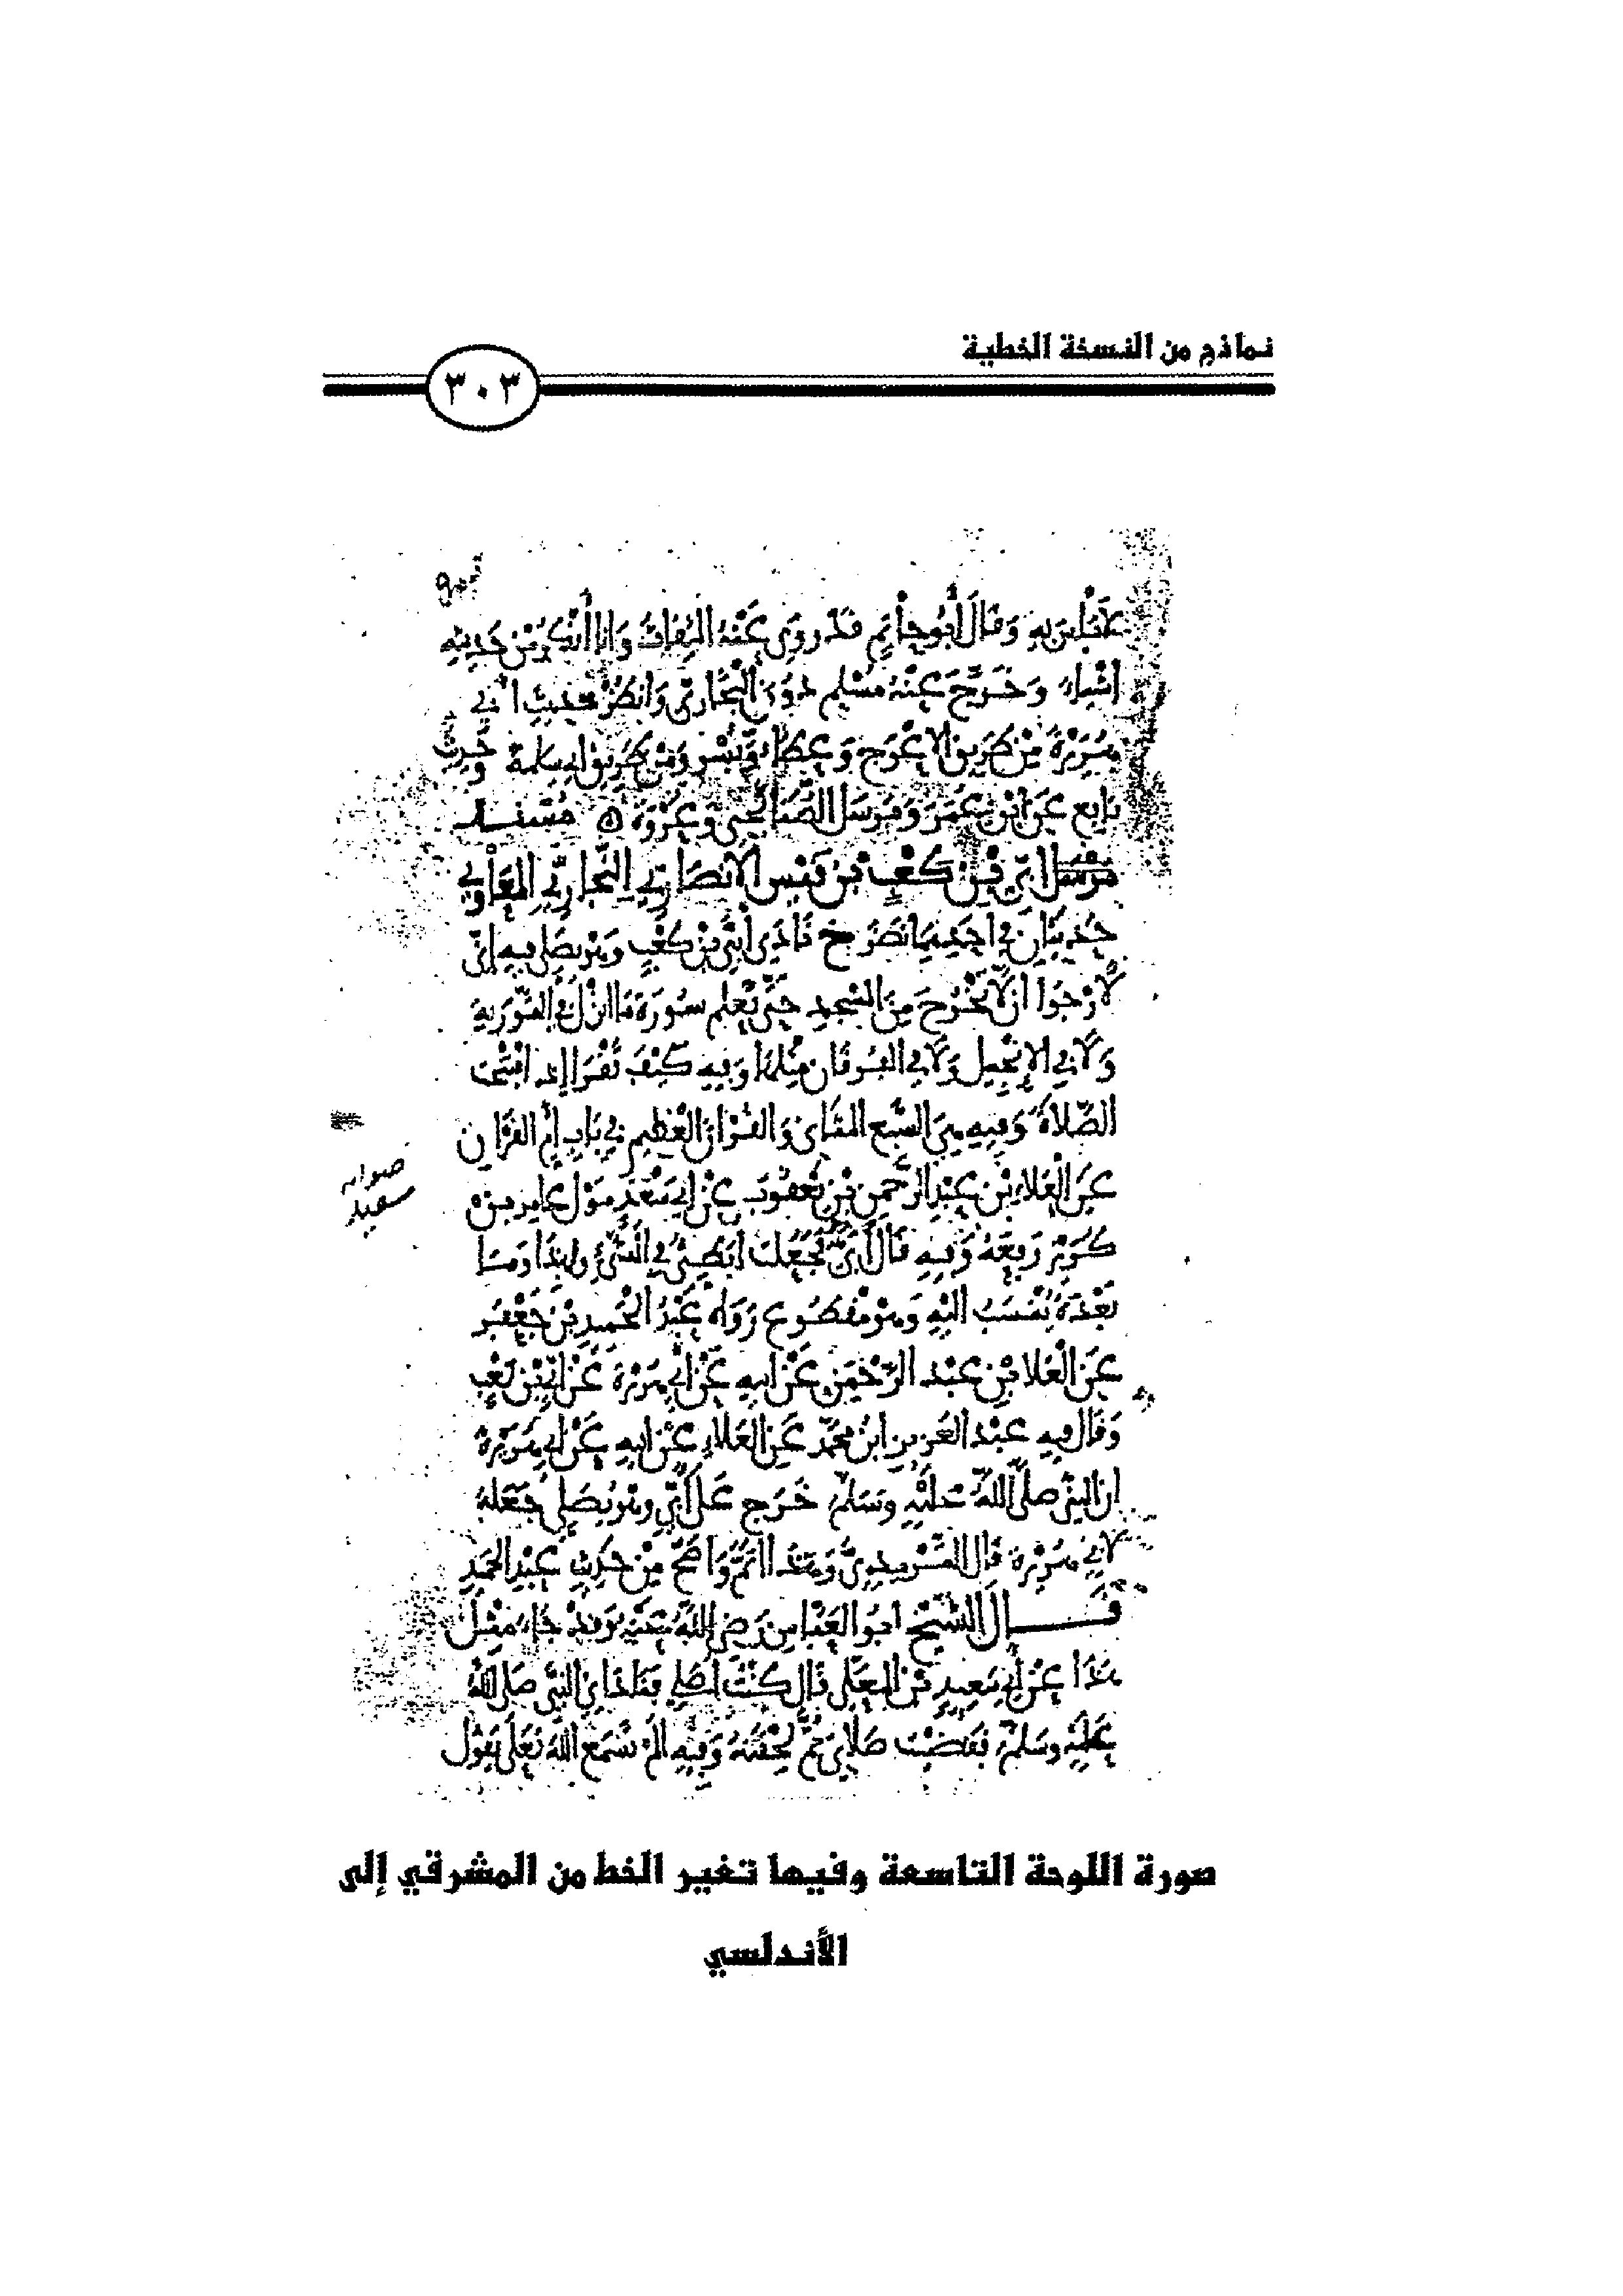 نماذج من النسخة الخطية
٣٠٣
به وَقَالَ أَبُو حَاتِم قَدْ رَوَى عَنْهُ الثِّقَات وَانا أُنْكِرُ مِنْ حَدِيثِهِ
اشْيَاء وَخَرَّجَ عَنْهُ مُسْلِم دُونَ الْبُخَارِيّ وَانظُرْ حَدِيث ابي
هُرَيْرَةَ مِن طَرِيق الاعْرَج وَعَطَاء وَبُسْرٍ وَمِن طَرِيق ابِي سَلمة وَحَدِيث
نَافِع عَن ابْن عُمَرَ وَمُرْسَل الصُّنَابِحِي وَعُرْوَة ه مُسْنَد
مُرْسَل ابَيّ بْن كَعْب بْن قَيْس الانصَارِي النَّجَّارِي المُعَاوِي
حَدِيثَان فِي احَدِهِمَا نَظَر مح نَادَى أُبَيَّ بْن كَعْبٍ وَهو يصَلي فيه إنّي
لأرْجُوا ان لا تَخْرُجَ مِنَ المسْجِدِ حَتَّى تَعْلم سُورَة مَا انزلَ في التَّوْرَيةِ
وَلاَ فِي الإنْجِيل وَلاَ فِي الفُرقَان مِثْلهَا وَفيه كَيْفَ تَقْرَا إذا افْتَتَحْتَ
الصَّلاةَ وَفيهِ هِيَ السَّبْع المَثَانِي وَالقُرْآن العَظِيم فِي بَابِ أم القرْآن
عَن الْعَلاءِ بْن عَبْدِ الرَّحْمَن بْن يَعْقُوبَ عَنْ ابِي سَعْدٍ مَوْلى عَامِر بن
صوابه
سعيد
كُرَيْز رَفَعَهُ وَفيهِ قَالَ أُبَيّ فَجَعَلتُ ابَطِئُ فِي الْمَشْي وهَذَا وَمَا
بَعْدَهُ يُنْسَبُ اليْهِ وَهو مَقْطُوع رَوَاهُ عَبْدُ الحَميدِ بْن جَعْفَر
عَن الْعَلا بْن عَبْد الرَّحْمَن عَنْ ابيهِ عَنْ أَبِي هُرَيْرَة عَنْ ابَيّ بْن كَعْب
وَقَال فيهِ عَبْد العَزيز ابنُ محمّد عَن العَلاء عَنْ ابيهِ عَنْ ابِي هُرَيْرَة
ان النبيّ صَلى اللهُ عَلَيْهِ وَسَلم خَرَج عَلى أُبَيّ وهو يُصَلِّي فجَعَلهُ
لابِي هُرَيْرة قَال التِّرمِذِيّ وَهَذَا اتَمُّ وَاصَحُّ مِنْ حَدِيث عَبْدِ الحَميد
قـــال الشَّيْخ ابُو العَبَّاس رَضي اللهُ عَنْه وَقدْ جَاءَ مِثْل
هَذَا عَنْ أَبِي سَعِيدٍ بْن المعَلَّى قَال كنْتُ اصَلي فنَادَانِي النبيّ صَلى اللهُ
عَلَيْهِ وسَلم فَقضَيْت صَلاتِي ثمَّ لحِقْتهُ وَفيهِ الم تَسْمَع اللهَ تَعَلى يَقول
صورة اللوحة التاسعة وفيها تغير الخط من المشرقي إلى
الأندلسي